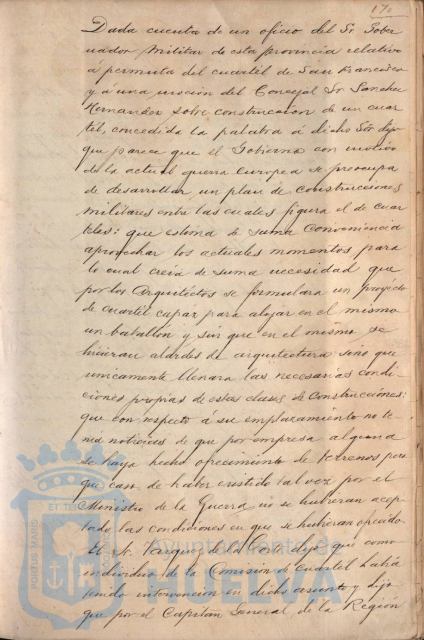 170
Dada cuenta de un oficio del Sr Gober
nador Militar de esta provincia relativo
á permuta del cuartel de San Francisco
y á una moción del Concejal Sr Sanchez
Hernandez sobre construccion de un cuar
tel, concedida la palabra á dicho Sor dijo
que parece que el Gobierno con motivo
de la actual guerra Europea se preocupa
de desarrollar un plan de construcciones
militares entre las cuales figura el de cuar
teles: que estima de suma conveniencia
aprovechar los actuales momentos para
lo cual creia de suma necesidad que
por los Arquitectos se formulara un proyecto
de cuartel capaz para alojar en el mismo
un batallon y sin que en el mismo se
hicieran alardes de arquitectura sino que
unicamente llenara las necesarias condi-
ciones propias de estas clases de construcciones:
que con respecto á su emplazamiento no te
nia noticias de que por empresa alguna
se haya hecho ofrecimiento de terrenos pero
que caso de haber existido tal vez por el
Ministro de la Guerra no se hubieran acep
tado las condiciones en que se hubieran ofrecido.
El Sr. Vazquez de la Corte dijo que como
individuo de la Comision de Cuartel había
tenido intervencion en dicho asunto y dijo
que por el Capitan General de la Región
Ayuntamiento de
HUELVA
PORTUS MARIS
ET TE